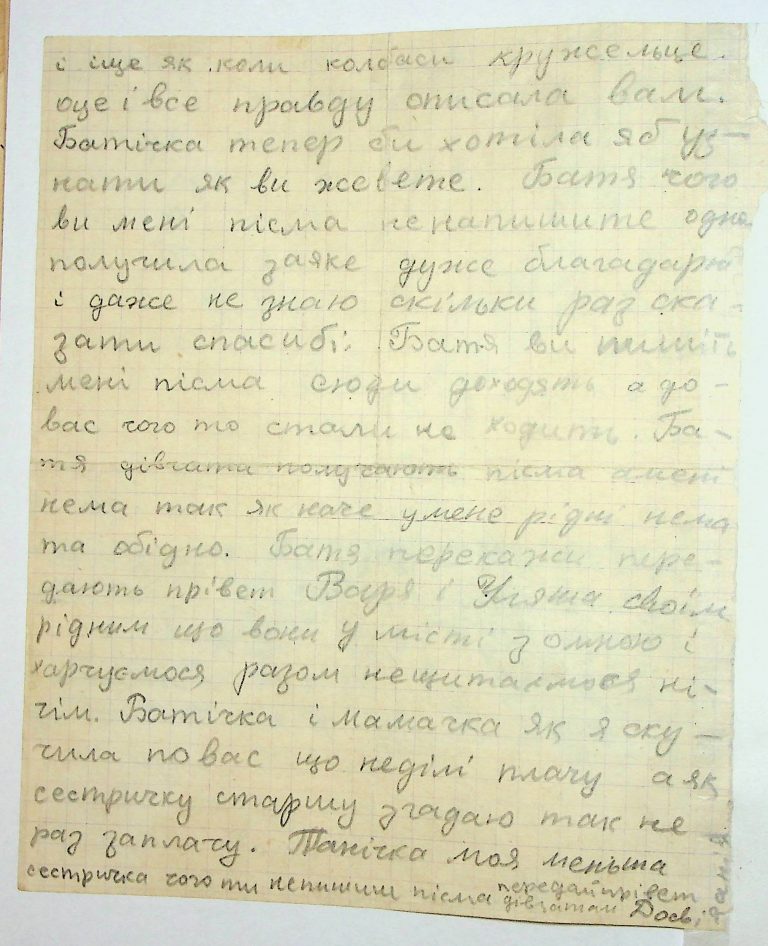 і іще як коли колбаси кружельце.
оце і все правду описала вам.
Батічка тепер би хотіла яб уз-
нати як ви жевете. Батя чого
ви мені пісма ненапишите одно
получила заяке дуже благадарю
і даже не знаю скільки раз ска-
зати спасибі. Батя ви пишіть
мені пісма сюди доходять а до-
вас чого то стали не ходить. Ба-
тя дівчата получають пісма амені
нема так як наче умене рідні нема
та обідно. Батя перекажи пере-
дають прівет Варя і Уляша своїм
рідним що вони у місті зомною і
харчуємося разом нещитаємося ні-
чім. Батічка і мамачка як я ску-
чила по вас що неділі плачу а як
сестричку старшу згадаю так не
раз заплачу. Танічка моя меньша
сестричка чого ти непишиш пісма передай прівет
дівчатам Досві
даня